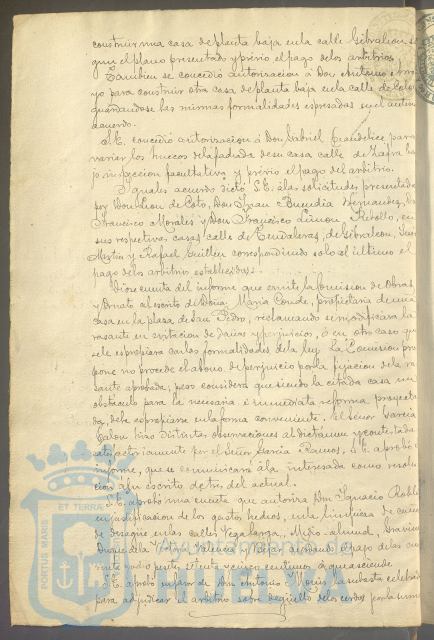 construir una casa de planta baja en la calle Gibraleon se
gun el plano presentado y previo el pago de los arbitrios
Tambien se concedió autorización á Don Antonio
yo para construir otra casa de planta baja en la calle de Colon
guardandose las mismas formalidades espresadas en el anterior
acuerdo.
S.E. concedió autorización á Don Gabriel para
variar los huecos de la fachada de su casa calle de Zafra ba
jo inspeccion facultativa y previo el pago del arbitrio.
Iguales acuerdo dictó S.E. á las solicitudes presentadas
por Don de Coto, Don Juan Buendia Hernandez, Don
Francisco Morales y Don Francisco Limon Rebollo, en
sus respectivas casas calle de Tendaleras, de Gibraleon, San
Martin y Rafael Guillen correspondiendo solo al ultimo el
pago de los arbitrios establecidos.
Dióse cuenta del informe que emite la Comision de Obras
y Ornato al escrito de Doña Maria Conde, propietaria de una
casa en la plaza de San Pedro, reclamando se modificara la
rasante en evitacion de daños y perjuicios, ó en otro caso que
se le espropiara con las formalidades de la ley. La Comision pro
pone no procede el abono de perjuicio por la fijacion de la ra
sante aprobada, pero considera que siendo la citada casa un
obstáculo para la necesaria é inmediata reforma proyecta
da, debe espropiarse en la forma conveniente. El Señor Garcia
Cabou hizo distintas observaciones al dictámen y contestada
satisfactoriamente por el Señor Garcia Ramos, S.E. aprobó el
informe, que se comunicará á la interesada como resolu
cion á su escrito de tres del actual.
S.E. aprobó una cuenta que autoriza Don Ignacio Roble
en justificacion de los gastos hechos, en la limpieza de caños
de desague en las calles Vega-larga, Medio-almud,
de la y Bejar el pago de las
pesetas setenta y cinco centimos á que asciende.
S.E. aprobó en favor de Don Antonio la subasta celebrada
para adjudicar el arbitrio sobre degüello de los cerdos por la suma
PORTUS MARIS ET TERRAE
Ayuntamiento de
HUELVA